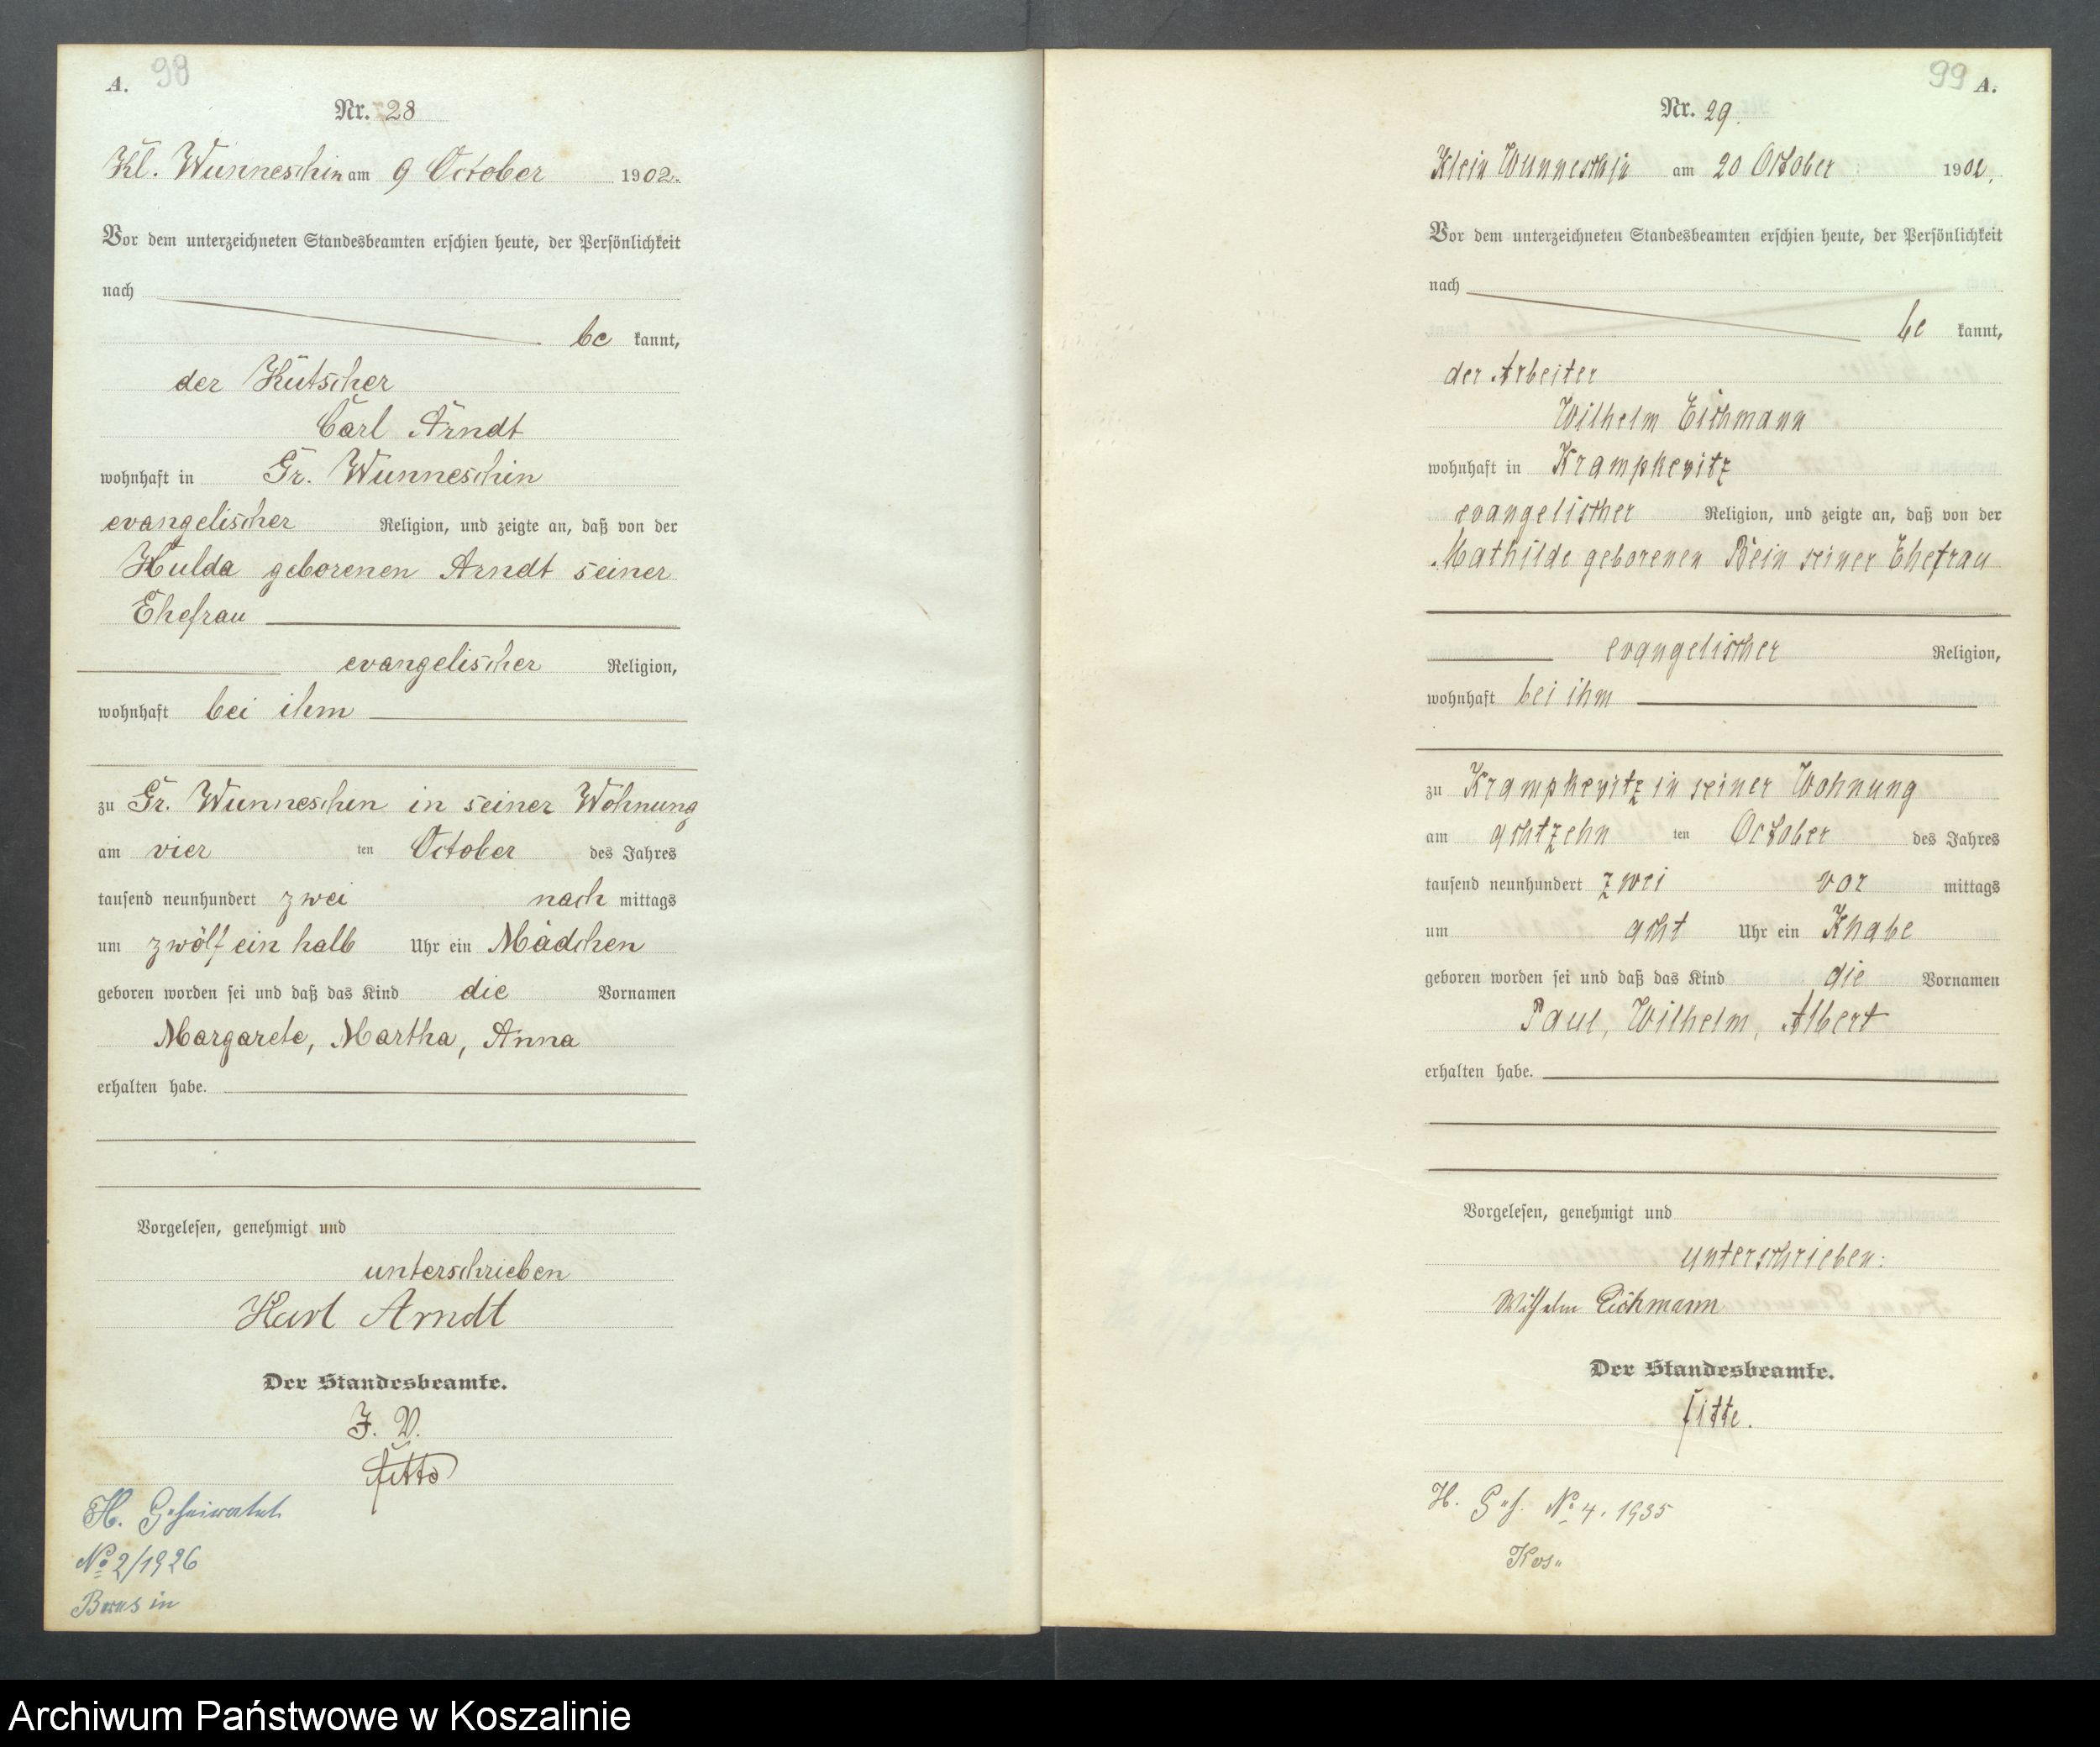 A. 98
Nr. 28
Kl. Wunneschin am 9 October 1902.
Vor dem unterzeichneten Standesbeamten erschien heute, der Persönlichkeit
nach
be kannt,
der Kutscher
Carl Arndt
wohnhaft in Gr. Wunneschin
evangelischer Religion, und zeigte an, daß von der
Hulda geborenen Arndt seiner
Ehefrau
evangelischer Religion,
wohnhaft bei ihm
zu Gr. Wunneschin in seiner Wohnung
am vier ten October des Jahres
tausend neunhundert zwei nach mittags
um zwölf ein halb Uhr ein Mädchen
geboren worden sei und daß das Kind die Vornamen
Margarete, Martha, Anna
erhalten habe.
Vorgelesen, genehmigt und
unterschrieben
Karl Arndt
Der Standesbeamte.
J. V.
H. Geheiratet
No 2/1926
99 A.
Nr. 29.
Klein Wunneschin am 20 October 1902.
Vor dem unterzeichneten Standesbeamten erschien heute, der Persönlichkeit
nach
be kannt,
der Arbeiter
Wilhelm Eichmann
wohnhaft in Krampkewitz
evangelischer Religion, und zeigte an, daß von der
Mathilde geborenen Bein seiner Ehefrau
evangelischer Religion,
wohnhaft bei ihm
zu Krampkewitz in seiner Wohnung
am achtzehn ten October des Jahres
tausend neunhundert zwei vor mittags
um acht Uhr ein Knabe
geboren worden sei und daß das Kind die Vornamen
Paul, Wilhelm, Albert
erhalten habe.
Vorgelesen, genehmigt und
unterschrieben:
Wilhelm Eichmann
Der Standesbeamte.
H. No 4. 1935
Archiwum Państwowe w Koszalinie